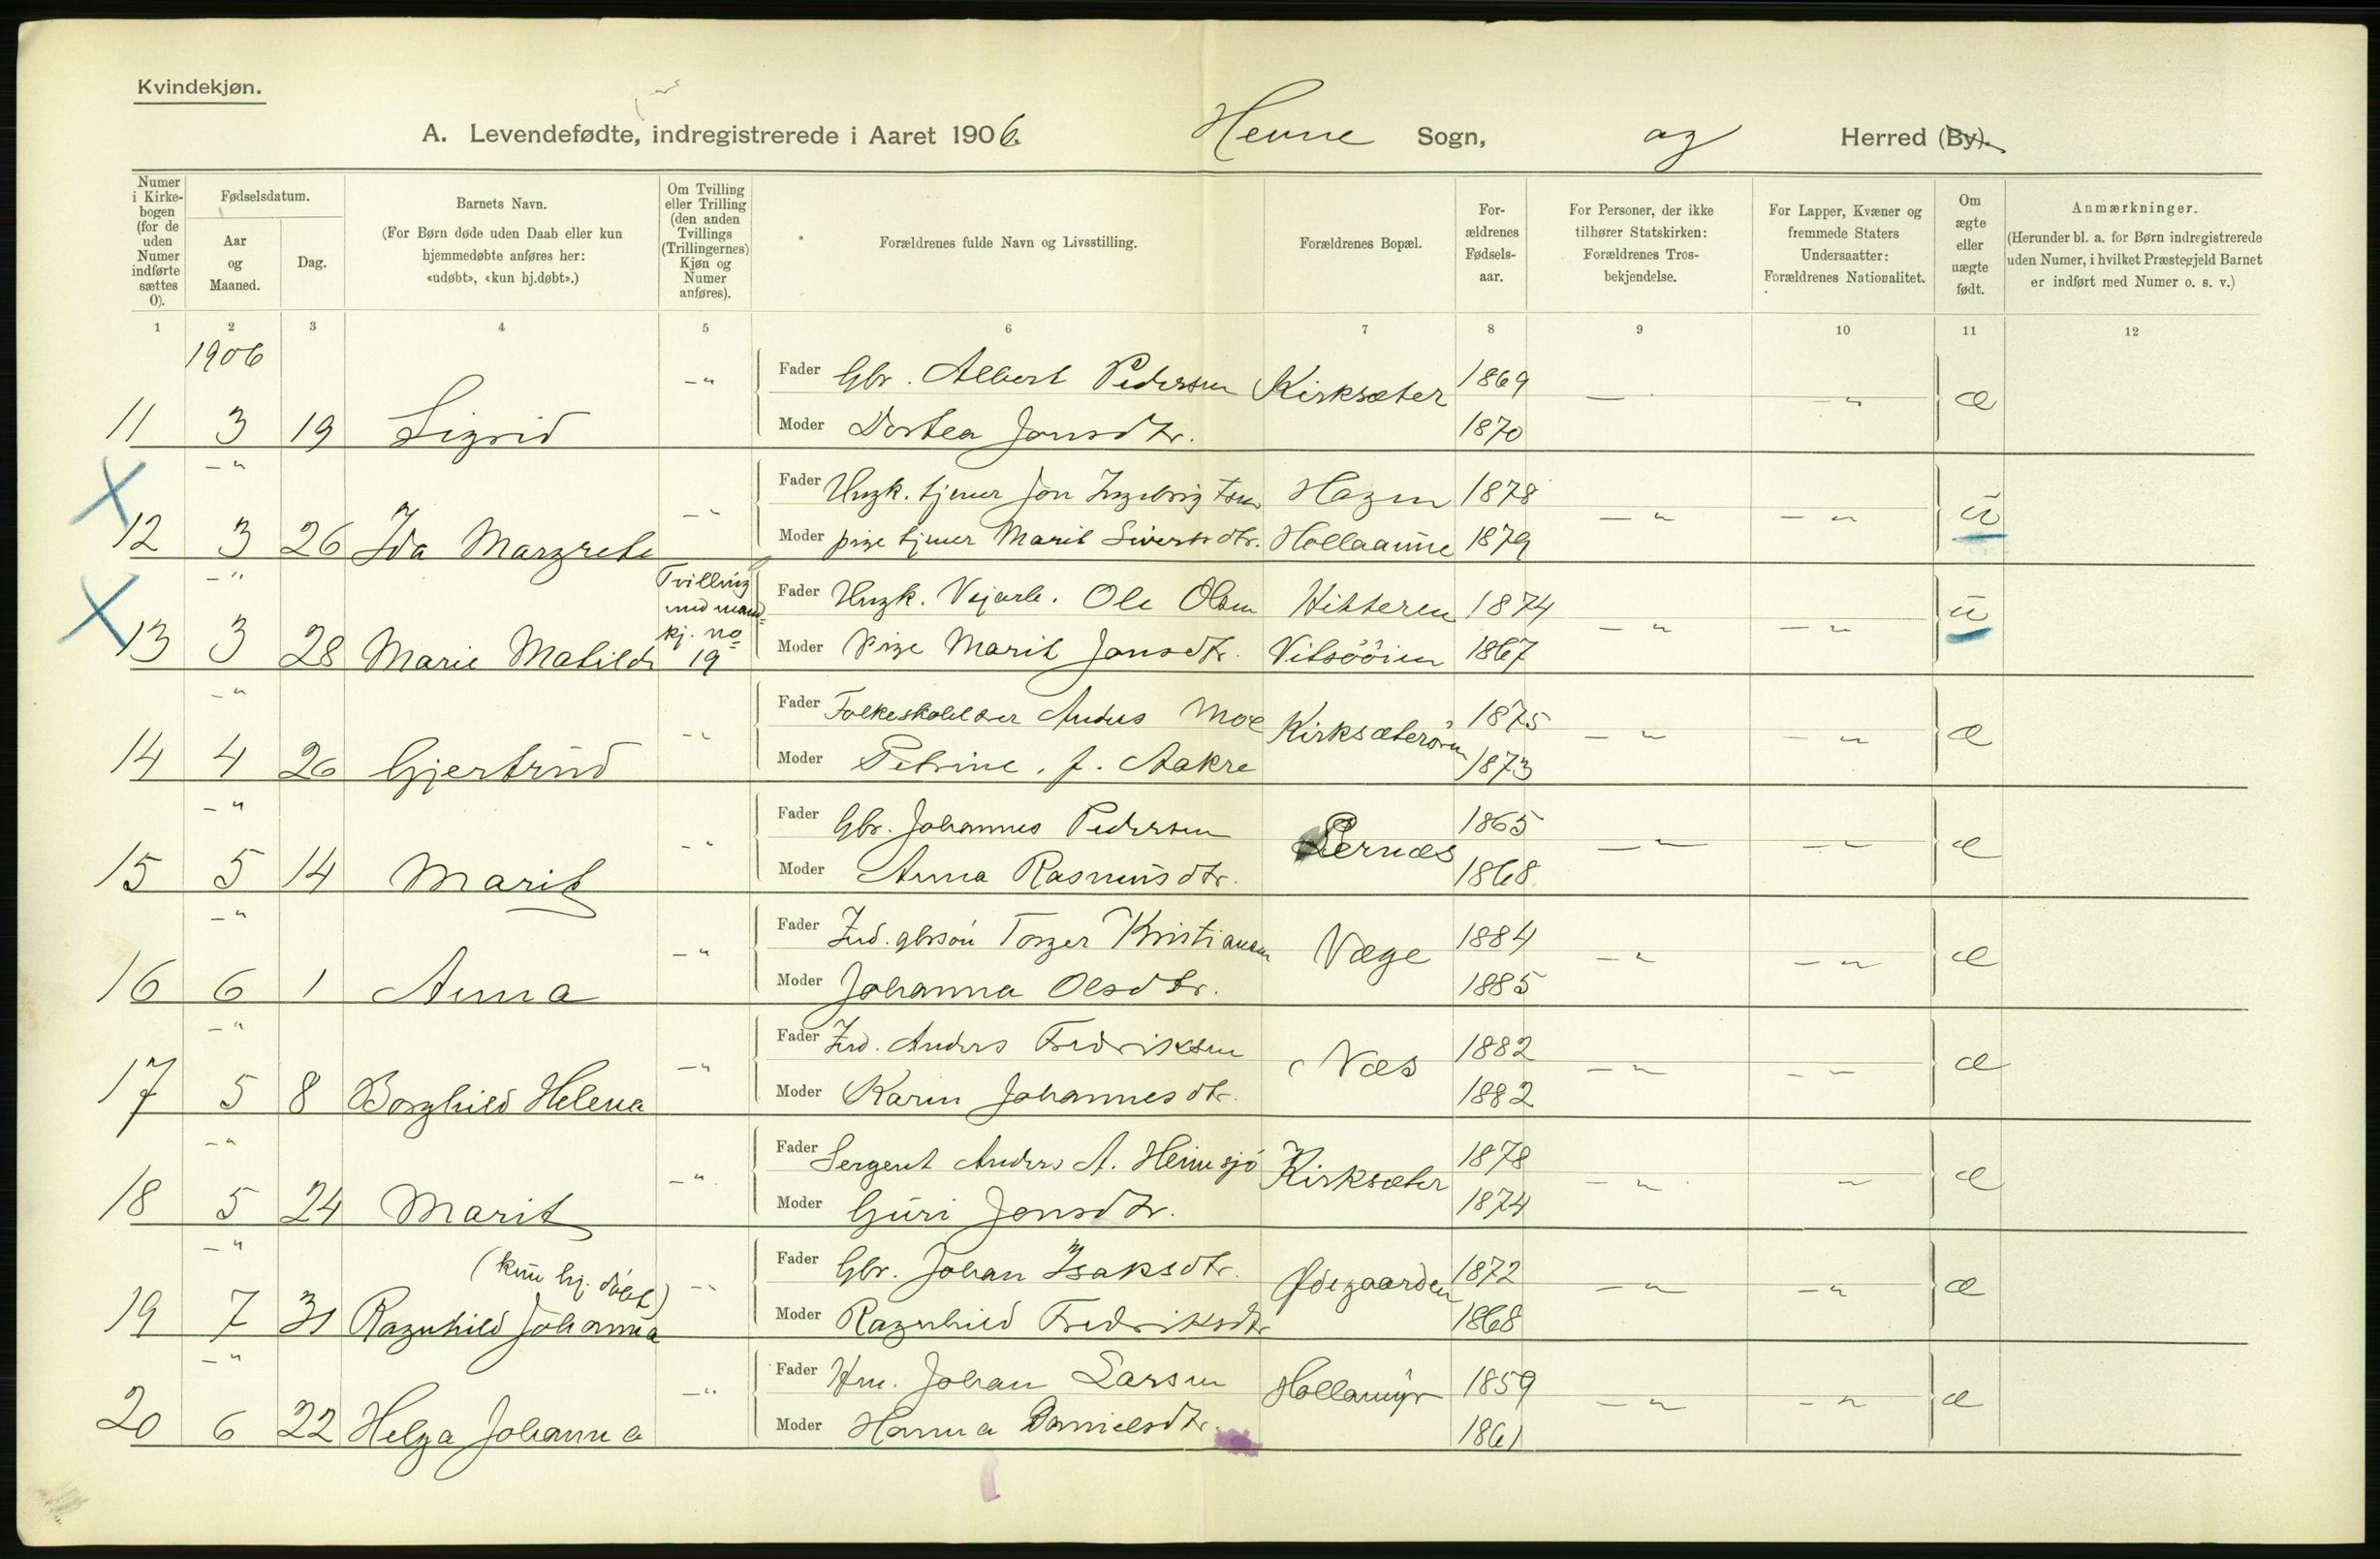 Kvindekjøn.
A. Levendefødte, indregistrerede i Aaret 1906. Hevne Sogn, og Herred (By).
Numer i Kirkebogen (for de uden Numer indførte sættes 0).
Fødselsdatum.
Aar og Maaned.
Dag.
Barnets Navn.
(For Børn døde uden Daab eller kun hjemmedøbte anføres her: «udøbt», «kun hj.døbt».)
Om Tvilling eller Trilling (den anden Tvillings (Trillingernes) Kjøn og Numer anføres).
Forældrenes fulde Navn og Livsstilling.
Forældrenes Bopæl.
For-ældrenes Fødsels-aar.
For Personer, der ikke tilhører Statskirken: Forældrenes Tros-bekjendelse.
For Lapper, Kvæner og fremmede Staters Undersaatter: Forældrenes Nationalitet.
Om ægte eller uægte født.
Anmærkninger.
(Herunder bl. a. for Børn indregistrerede uden Numer, i hvilket Præstegjeld Barnet er indført med Numer o. s. v.)
1 2 3 4 5 6 7 8 9 10 11 12
1906
Fader Gbr. Albert Pedersen Kirksæter 1869
11 3 19 Sigrid -" — -" æ
Moder Dortea Jonsdtr. 1870
-"
Fader Ungk. tjener Jon Ingebrigtsen Hagen 1878
12 3 26 Ida Margrete -" -" -" u
Moder pige tjener Marit Sivertsdtr. Hollaaune 1879
-"
Fader Ungk. Vejarb. Ole Olsen Hitteren 1874
13 3 28 Marie Matilde Tvilling med mand-kj. no 19 -" -" u
Moder Pige Marit Jonsdtr. Vitsööien 1867
-"
Fader Folkeskolelærer Anders Moe 1875
14 4 26 Gjertrud -" Kirksæterören -" -" æ
Moder Petrine, f. Aakre 1873
-"
Fader Gbr. Johannes Pedersen 1865
15 5 14 Marit -" -" -" æ
Moder Anna Rasmusdtr. 1868
-"
Fader Ind. gbrsön Torger Kristiansen 1884
16 6 1 Anna -" Væge -" -" æ
Moder Johanna Olsdtr. 1885
-"
Fader Ind. Anders Fredriksen 1882
17 5 8 Borghild Helena -" Næs -" -" æ
Moder Karen Johannesdtr. 1882
-"
Fader Sergent Anders A. Heimsjö 1878
18 5 24 Marit -" Kirksæter -" — æ
Moder Guri Jonsdtr. 1874
-"
(kun hj. döbt)
Fader Gbr. Johan Isaksdtr. 1872
19 7 31 Ragnhild Johanna -" Ødegaarden -" -" æ
Moder Ragnhild Fredriksdtr 1868
-"
Fader Hm. Johan Larsen 1859
20 6 22 Helga Johanna -" Hollamyr -" -" æ
Moder Hanna Danielsdtr. 1861